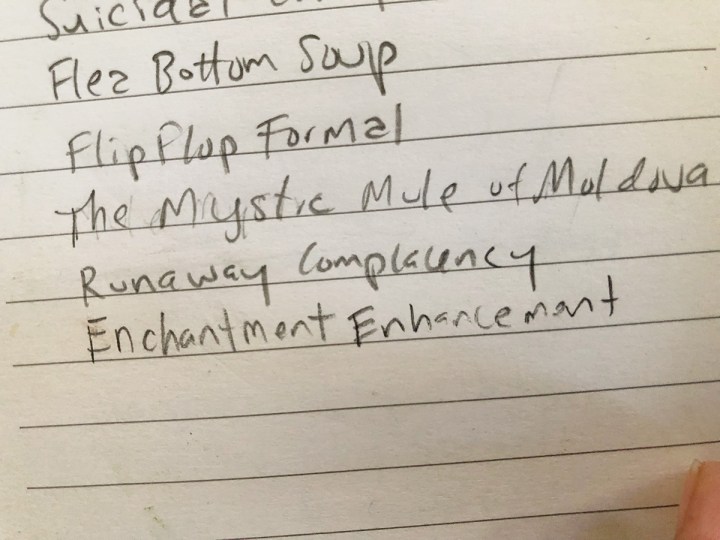 Suicidal
Flea Bottom Soup
Flip Flop Formal
The Mystic Mule of Moldova
Runaway Complacency
Enchantment Enhancement